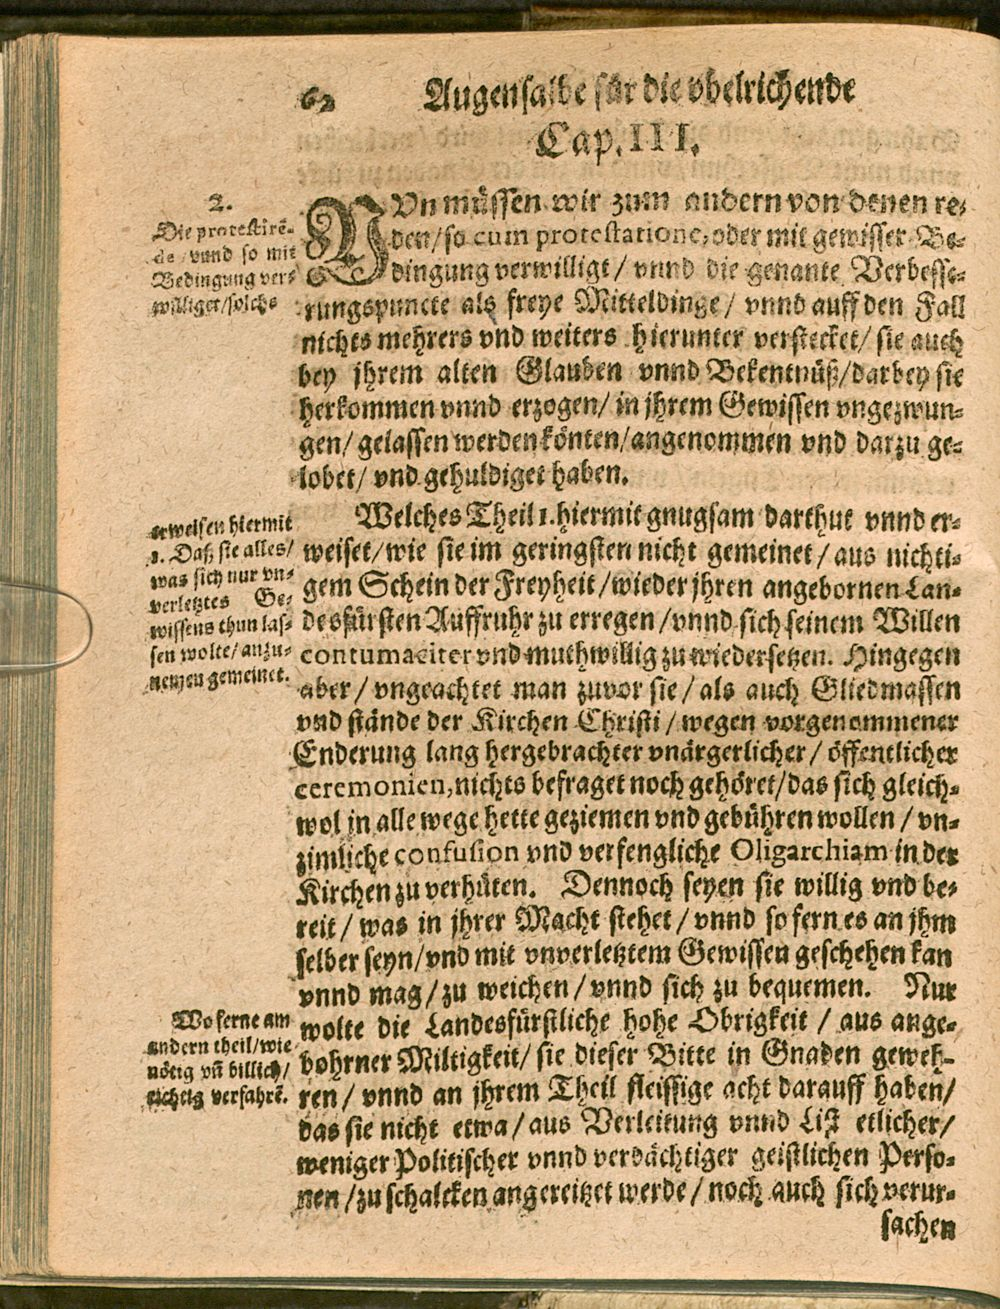 62 Augensalbe für die vbelrichende
Cap. III.
2.
Die protestirē-
de / vund so mit
Bedingung ver-
williget/solchs
NVn müssen wir zum andern von denen re-
den/so cum protestatione, oder mit gewisser Be-
dingung verwilligt / vnnd die genante Verbesse-
rungspuncte als freye Mitteldinge / vnnd auff den Fall
nichts mehrers vnd weiters hierunter verstecket/ sie auch
bey jhrem alten Glauben vnnd Bekentnüß/darbey sie
herkommen vnnd erzogen/ in jhrem Gewissen vngezwun-
gen/ gelassen werden könten/angenommen vnd darzu ge-
lobet/ vnd gehuldiget haben.
erweisen hiermit
1. Daß sie alles/
was sich nur vn-
verletztes Ge-
wissens thun las-
sen wolte/ anzu-
nemen gemeinet.
Welches Theil 1. hiermit gnugsam darthut vnnd er-
weiset/wie sie im geringsten nicht gemeinet / aus nichti-
gem Schein der Freyheit / wieder jhren angebornen Lan-
desfürsten Auffruhr zu erregen / vnnd sich seinem Willen
contumaciter vnd muthwillig zu wiedersetzen. Hingegen
aber / vngeachtet man zuvor sie / als auch Gliedmassen
vnd stände der Kirchen Christi / wegen vorgenommener
Enderung lang hergebrachter vnärgerlicher / öffentlicher
ceremonien, nichts befraget noch gehöret/das sich gleich-
wol in alle wege hette geziemen vnd gebühren wollen / vn-
zimliche confusion vnd verfengliche Oligarchiam in der
Kirchen zu verhüten. Dennoch seyen sie willig vnd be-
reit / was in jhrer Macht stehet / vnnd so fern es an jhm
selber seyn/vnd mit vnverletztem Gewissen geschehen kan
vnnd mag / zu weichen / vnnd sich zu bequemen. Nur
Wo ferne am
andern theil/wie
nötig vñ billich/
richtig verfahrē.
wolte die Landesfürstliche hohe Obrigkeit / aus ange-
bohrner Miltigkeit/ sie dieser Bitte in Gnaden geweh-
ren / vnnd an jhrem Theil fleissige acht darauff haben/
das sie nicht etwa / aus Verleitung vnnd List etlicher/
weniger Politischer vnnd verdächtiger geistlichen Perso-
nen / zu schalcken angereitzet werde / noch auch sich verur-
sachen